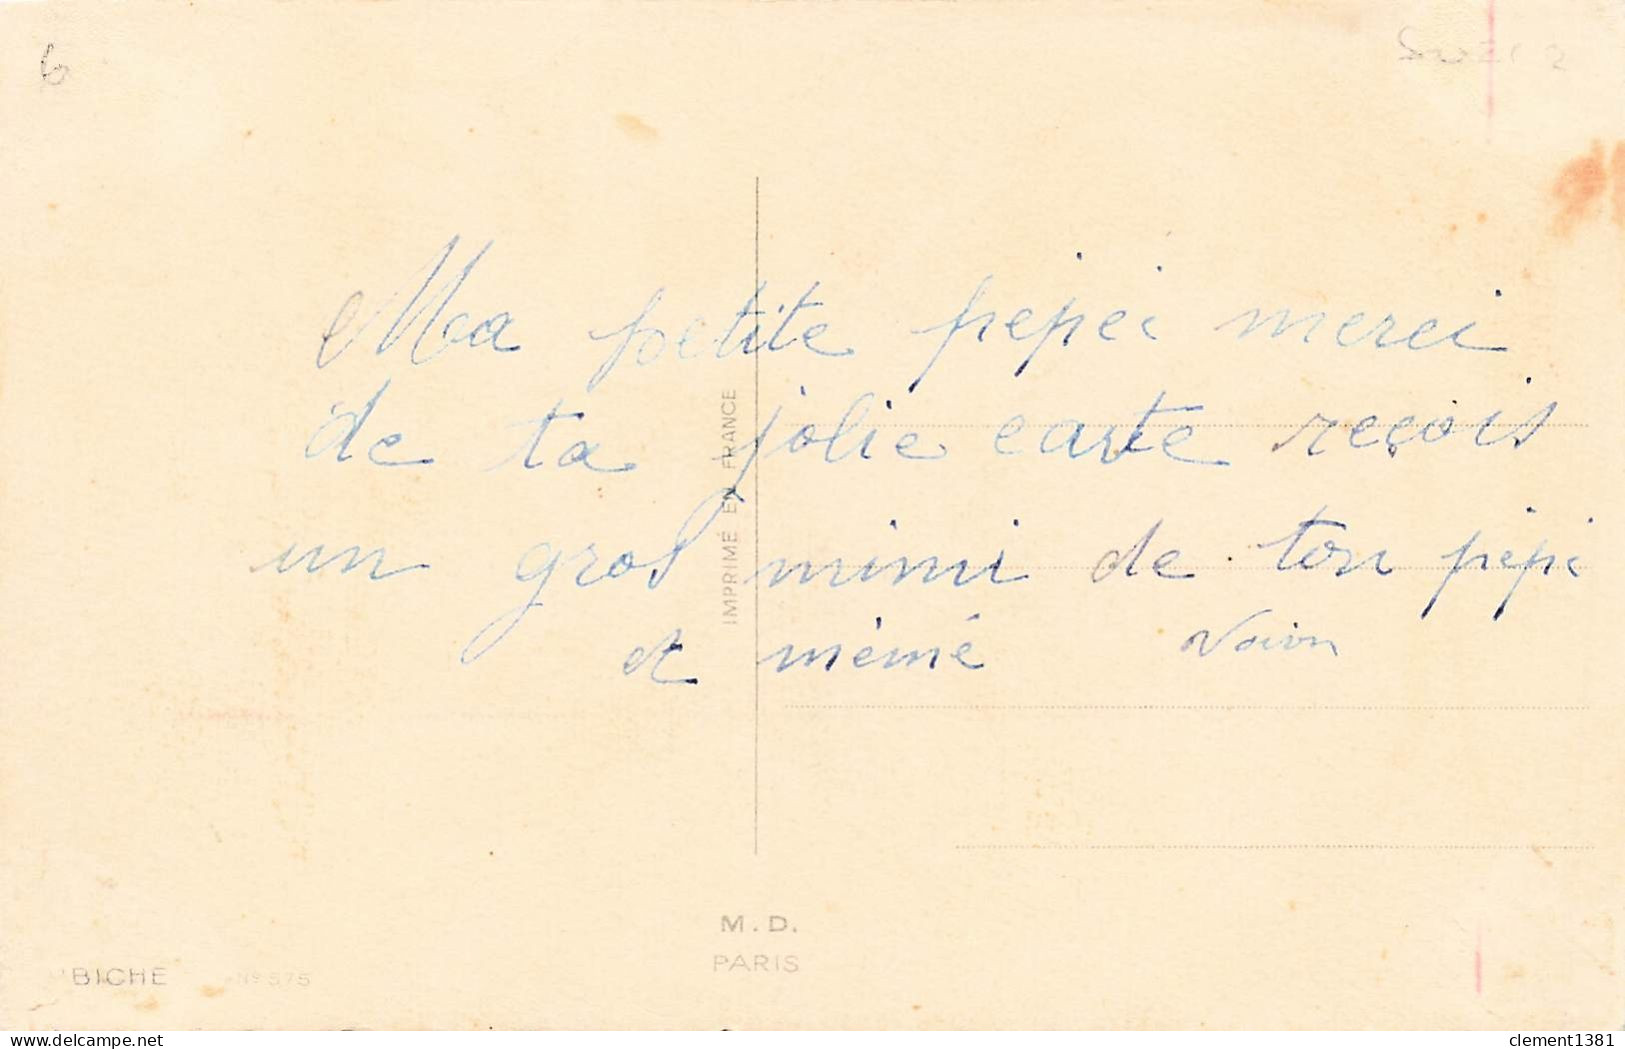 6
Ma petite pepei merci
de ta jolie carte reçois
un gros mimi de ton pépi
et mémé
IMPRIMÉ EN FRANCE
M. D.
PARIS
BICHE Nº 575
delcampe.net
clement1381